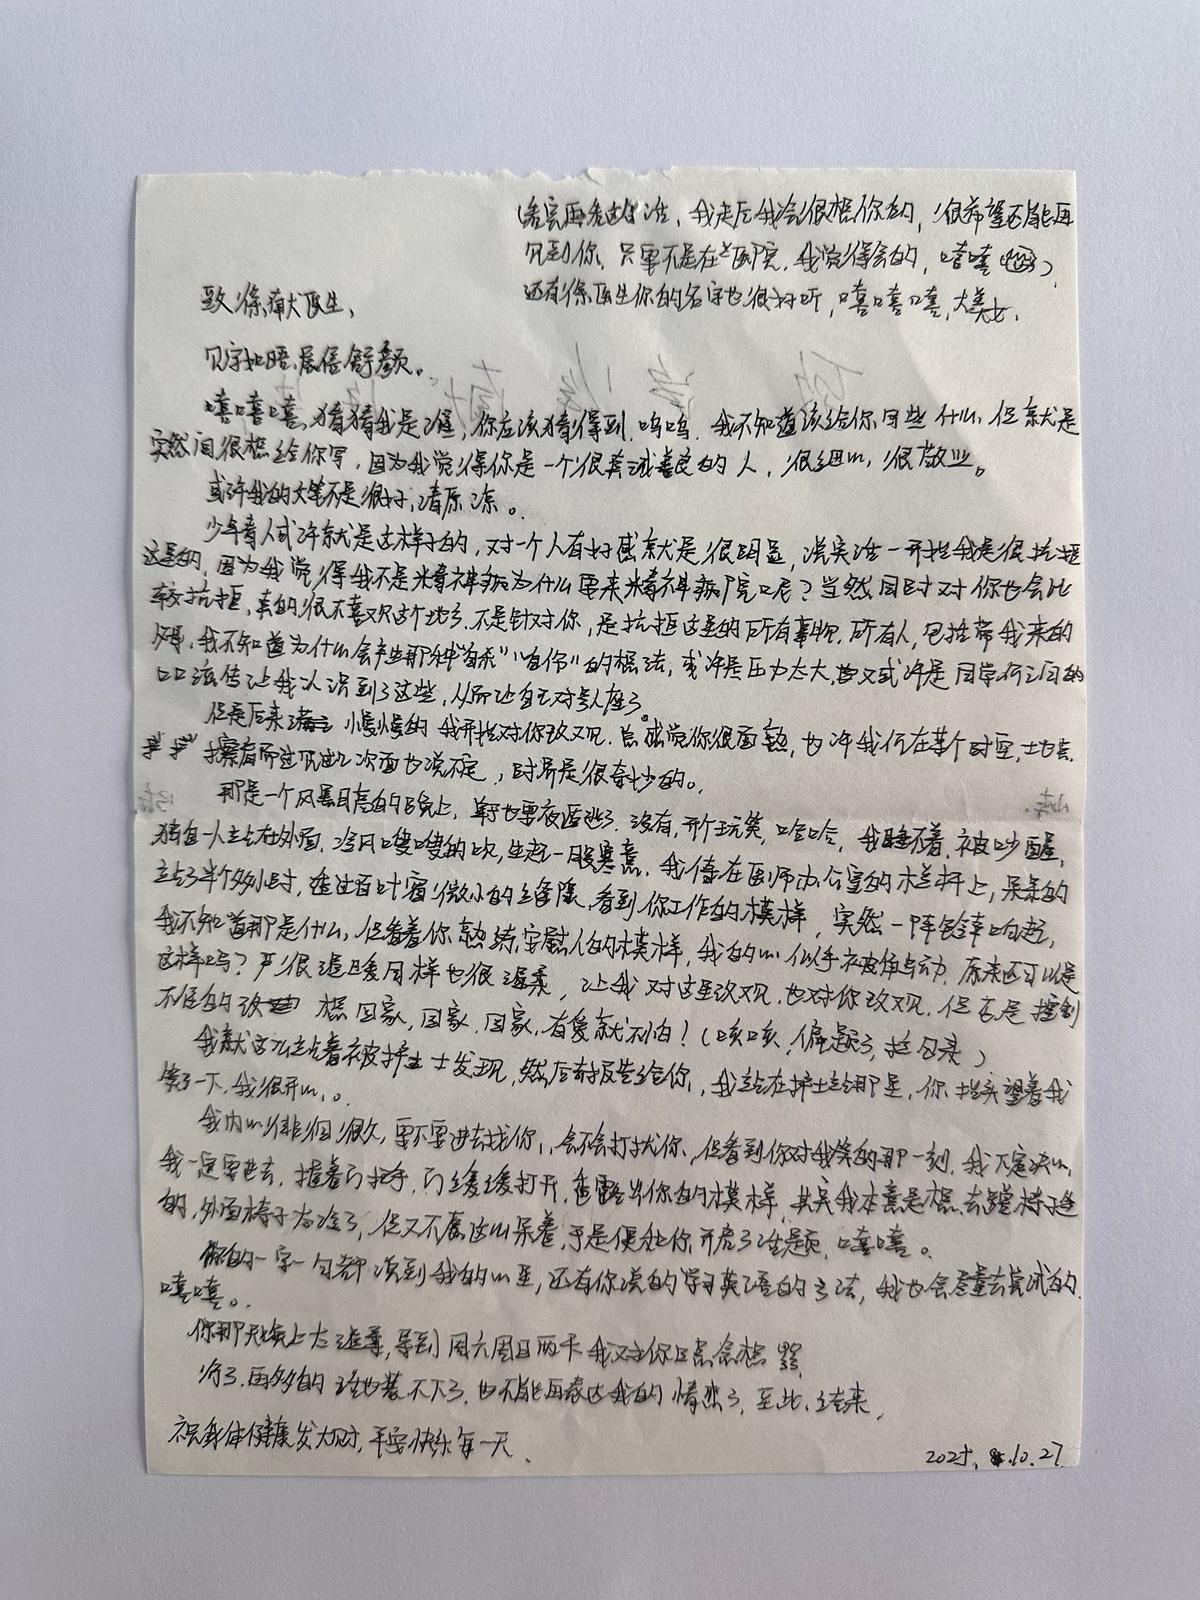 (看完再看这句话，我走后我会很想你的，很希望还能再
见到你，只要不是在医院，我觉得会的，嘻嘻)
还有徐医生你的名字也很好听，嘻嘻嘻嘻，大美女，
致徐献医生，
见字如晤，展信舒颜。
嘻嘻嘻，猜猜我是谁，你应该猜得到，呜呜，我不知道该给你写些什么，但就是
突然间很想给你写，因为我觉得你是一个很真诚善良的人，很细心，很敬业。
或许我的文笔不是很好，请原谅。
少年音人或许就是这样子的，对一个人有好感就是很明显，说实话一开始我是很抗拒
这里的，因为我觉得我不是精神病为什么要来精神病院呢？当然同时对你也会比
较抗拒，真的很不喜欢这个地方，不是针对你，是抗拒这里的所有事物，所有人，包括带我来的
妈，我不知道为什么会产生那种"自杀""自伤"的想法，或许是压力太大，又或许是同学们之间的
口口流传让我认识到了这些，从而让自己对号入座了。
但是后来 慢慢的 我开始对你改观，总感觉你很面熟，也许我们在某个时空，土地
擦肩而过 次面也说不定，时常是很奇妙的。
那是一个风高的晚上，单于也要夜遁逃了，没有，开个玩笑，哈哈，我睡不着，被吵醒，
独自一人站在外面，冷风嗖嗖的吹，生起一股寒意，我倚在医师办公室的栏杆上，呆呆的
站了半个多小时，透过百叶窗微小的缝隙，看到你工作的模样，突然一阵铃声响起，
我不知道那是什么，但看着你熟练安慰人的模样，我的心似乎被触动，原来还可以是
这样吗？严很温暖同样也很温柔，让我对这里改观，也对你改观，但还是控制
不住的 想回家，回家，回家，有爱就不怕！(咳咳，偏题了，拉回来)
我就这么站着被护士发现，然后报告给你，我站在护士站那里，你抬头望着我
笑了一下，我很开心。
我内心徘徊很久，要不要进去找你，会不会打扰你，但看到你对我笑的那一刻，我下定决心，
我一定要进去，握着门把手，门缓缓打开，露出你的模样，其实我本意是想去 椅子
的，外面椅子太冷了，但又不愿这么呆着，于是便让你开启了话题，嘻嘻。
你的一字一句都烫到我的心里，还有你说的学习英语的方法，我也会尽量去尝试的
嘻嘻。
你那天晚上太温柔，导致周六周日两天我对你日思念想
好了，再多的话也装不下了，也不能再表达我的情感了，至此，结束，
祝我身体健康发大财，平安快乐每一天，
2025.10.27